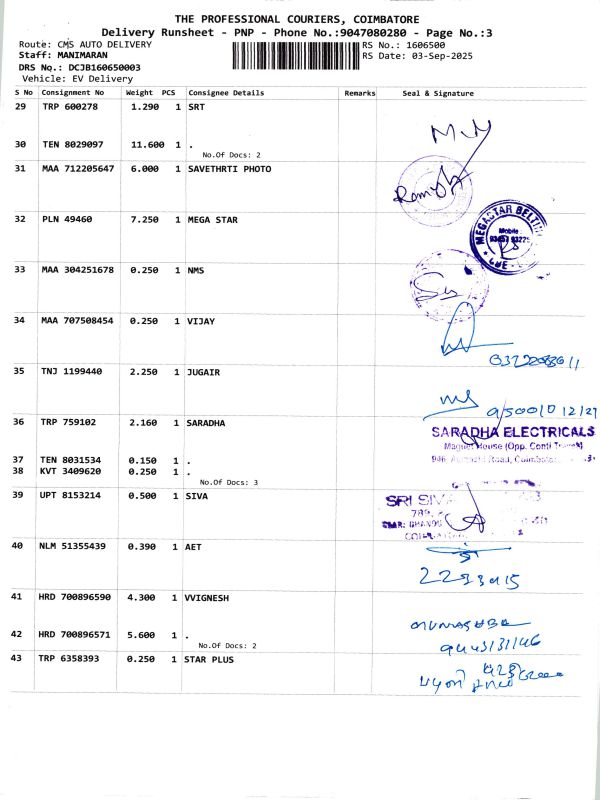 THE PROFESSIONAL COURIERS, COIMBATORE
Delivery Runsheet - PNP - Phone No.:9047080280 - Page No.:3
Route: CMS AUTO DELIVERY RS No.: 1606500
Staff: MANIMARAN RS Date: 03-Sep-2025
DRS No.: DCJB160650003
Vehicle: EV Delivery
S No Consignment No Weight PCS Consignee Details Remarks Seal & Signature
29 TRP 600278 1.290 1 SRT
30 TEN 8029097 11.600 1 .
No.Of Docs: 2
31 MAA 712205647 6.000 1 SAVETHRTI PHOTO
32 PLN 49460 7.250 1 MEGA STAR
MEGASTAR BELTIN
Mobile
33 MAA 304251678 0.250 1 NMS
34 MAA 707508454 0.250 1 VIJAY
35 TNJ 1199440 2.250 1 JUGAIR
36 TRP 759102 2.160 1 SARADHA
SARADHA ELECTRICALS
House (Opp. Conti
946, Road, Coimbatore
37 TEN 8031534 0.150 1 .
38 KVT 3409620 0.250 1 .
No.Of Docs: 3
39 UPT 8153214 0.500 1 SIVA
SRI SIVA
40 NLM 51355439 0.390 1 AET
41 HRD 700896590 4.300 1 VVIGNESH
42 HRD 700896571 5.600 1 .
No.Of Docs: 2
43 TRP 6358393 0.250 1 STAR PLUS